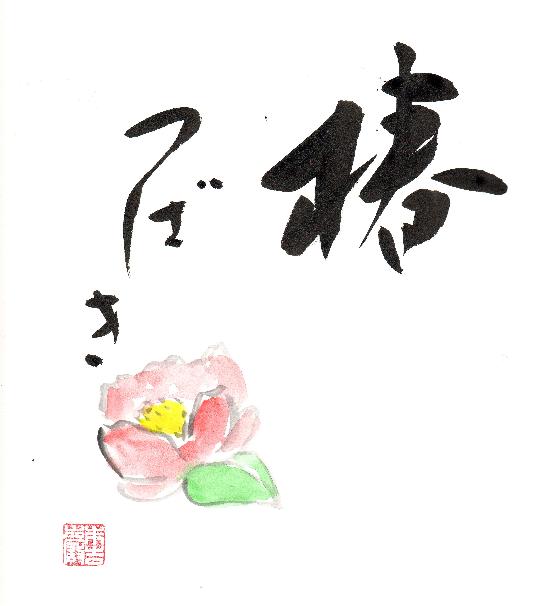 椿
つばき